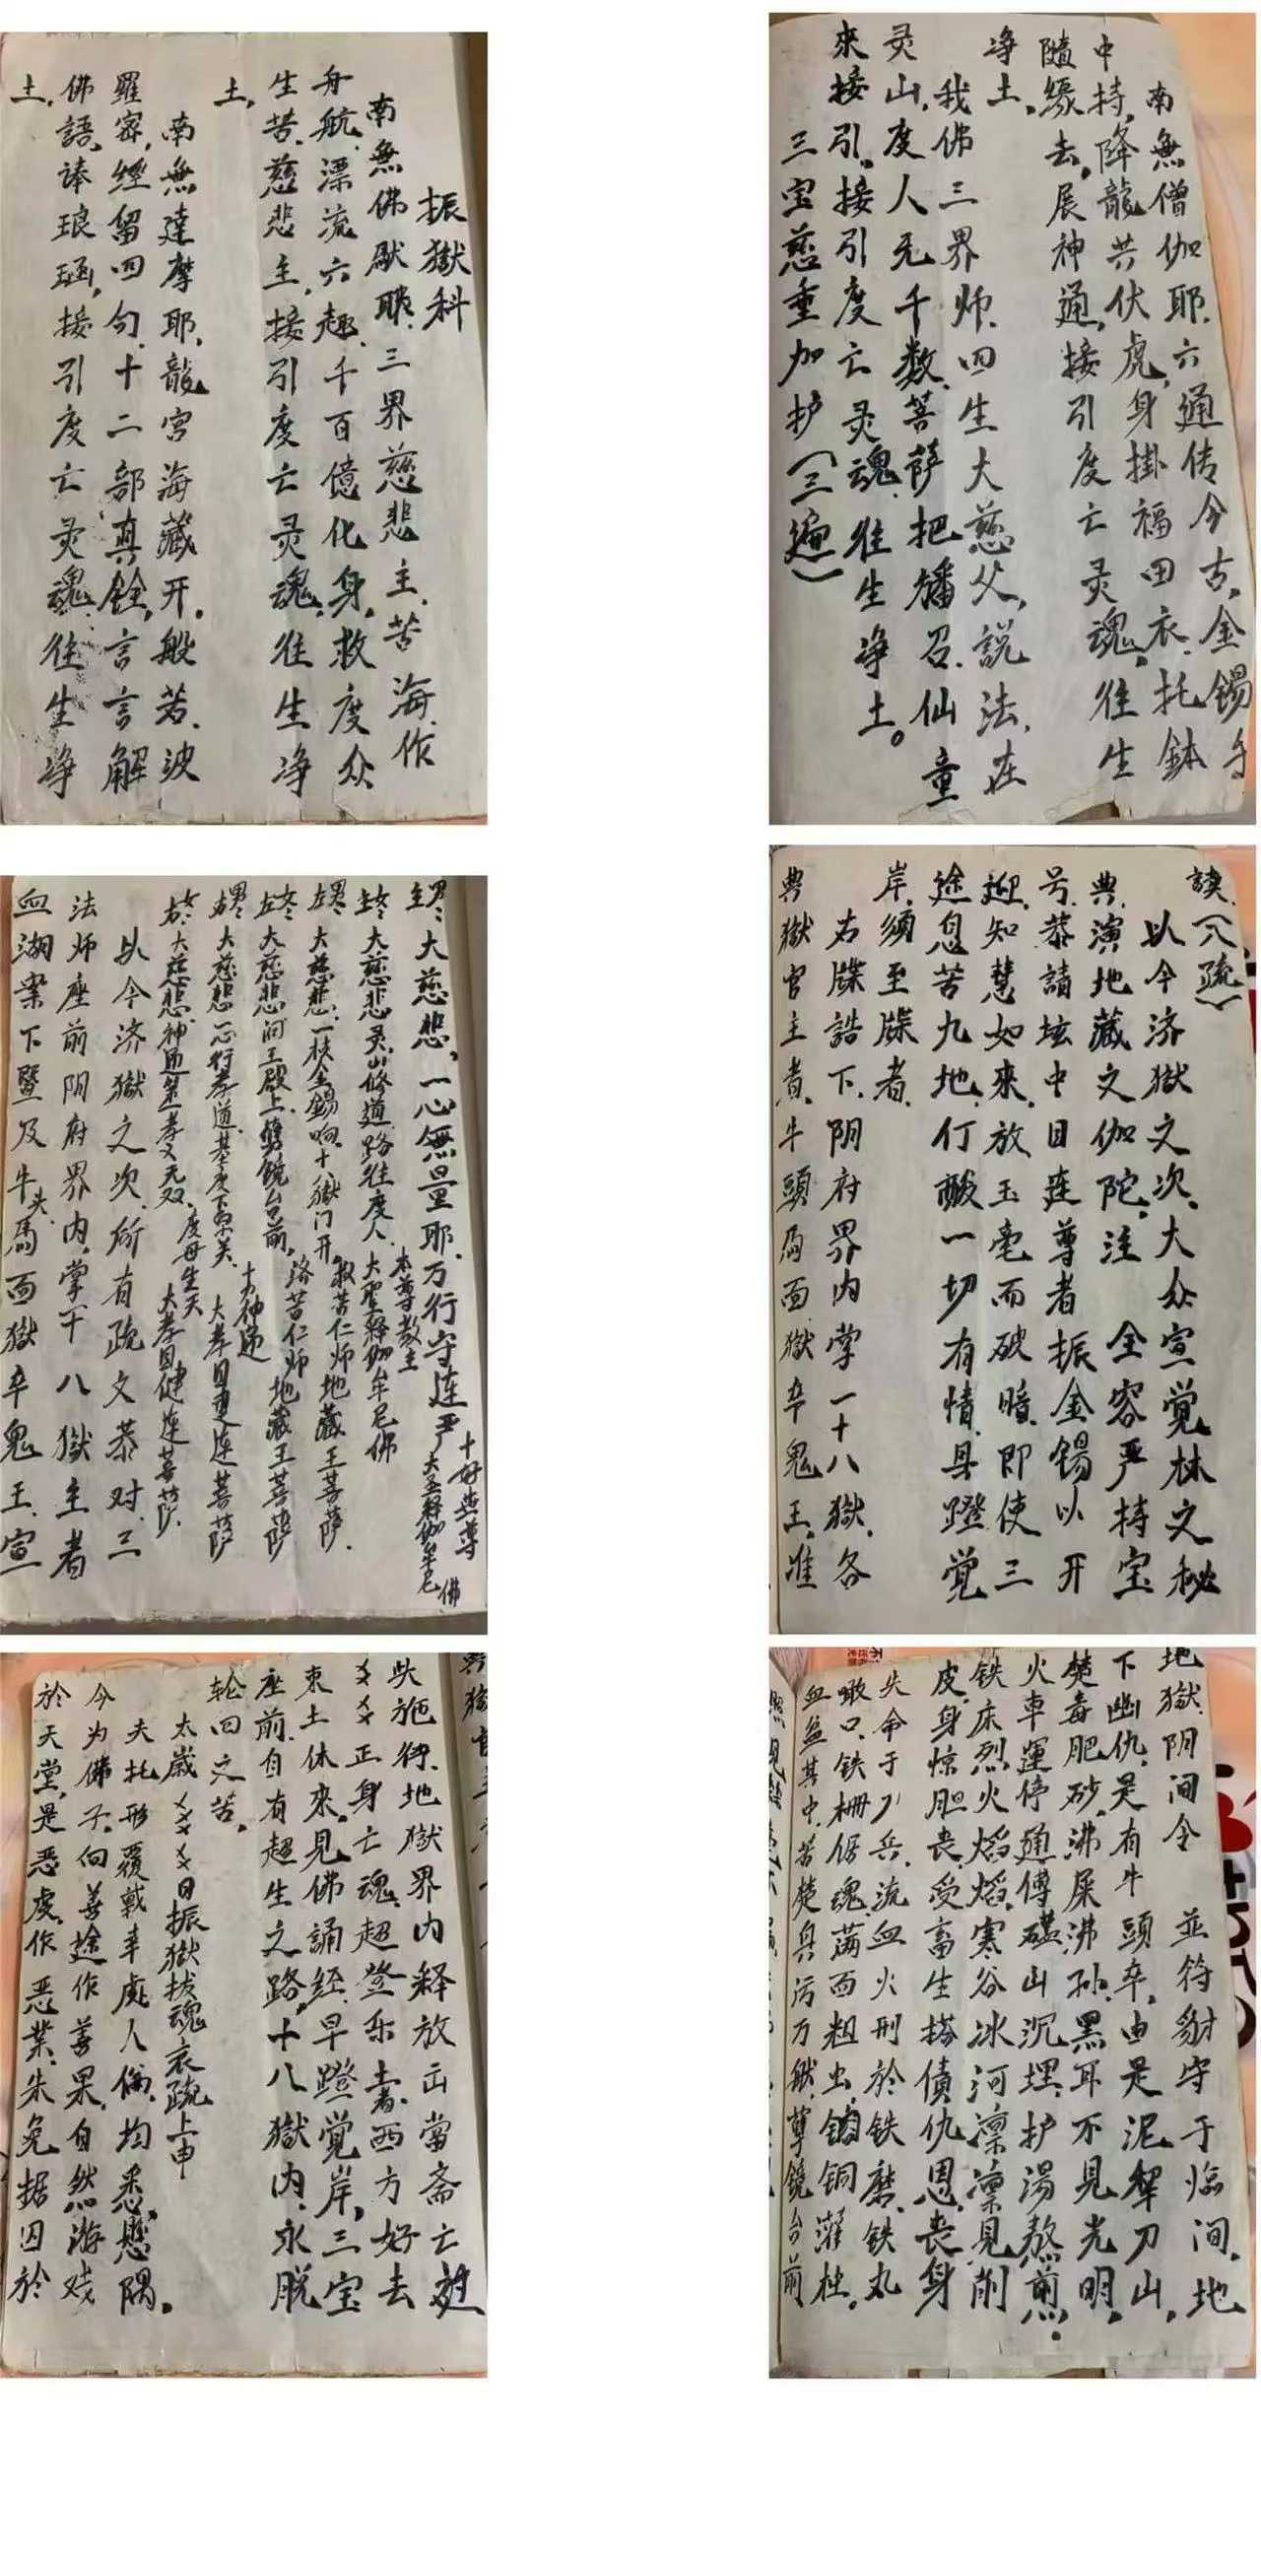 振獄科
南無佛馱耶、三界慈悲主、苦海作
舟航、漂流六趣、千百億化身、救度众
生苦、慈悲主、接引度亡灵魂、往生净
土、
南無達摩耶、龍宮海藏开、般若、波
羅密、經留四句、十二部真銓、言言解
佛語、琫琅函、接引度亡灵魂、往生净
土、
南無僧伽耶、六通传今古、金锡手
中持、降龍共伏虎、身掛福田衣、托鉢
隨緣去、展神通、接引度亡灵魂、往生
净土、
我佛三界师、四生大慈父、説法、在
灵山、度人无千数、菩萨把旛召、仙童
來接引、接引度亡灵魂、往生净土。
三宝慈重加护（三遍）
大慈悲、一心無量耶、万行守连严 十好共尊 大圣释伽牟尼佛
大慈悲、灵山修道路往度人、本尊教主 大聖释伽牟尼佛
大慈悲、一枝金錫响、十八獄门开、救苦仁师地藏王菩萨、
左 大慈悲 问王殿上、孽镜台前、洛苦仁师 地藏王菩萨
大慈悲 一心行孝道、十方神通 大孝目連连菩萨
大慈悲、神通第一孝义无双、度母生天 大孝目健连菩萨、
以今济獄之次、所有疏文恭对、三
法师座前阴府界内、掌十八獄主者
血湖案下暨及牛头馬面獄卒鬼王、宣
讀（入疏）
以今济獄之次、大众宣觉林之秘
典、演地藏文伽陀、注 全容严持宝
号、恭請坛中目连尊者振金錫以开
迎、知慧如来、放玉毫而破暗、即使三
途息苦九地、一切有情、具蹬觉
岸、须至牒者、
右牒誥下、阴府界内掌一十八獄、各
典獄官主者、牛頭馬面獄卒鬼王、准
此施行、地獄界内释放出當斋亡
××正身亡魂、超登乐土、西方好去
東土休來、見佛誦经、早蹬觉岸、三宝
座前、自有超生之路、十八獄内、永脱
轮回之苦、
太歲××日振獄拔魂衣疏上申
夫托形覆載、幸處人倫、均悉懸隅。
今为佛子、向善途作善果、自然游戏
於天堂、是恶處、作恶業、朱免据囚於
地獄、阴间令 並符豺守于临间、地
下幽仇、是有牛頭卒、由是泥犁刀山、
楚毒肥砂、沸屎沸孙、黑耳不見光明、
火車運停通傳磕山沉埋、护湯熬煎、
铁床烈火熖熖、寒谷冰河凛凛見削
皮、身惊胆丧、受畜生搭債仇恩、丧身
失命于刀兵、流血火刑於铁磨、铁丸
噉口、铁栅倨魂、满面粗虫、鎔铜灌柱、
血盆其中、苦楚具污万般、孽鏡台前